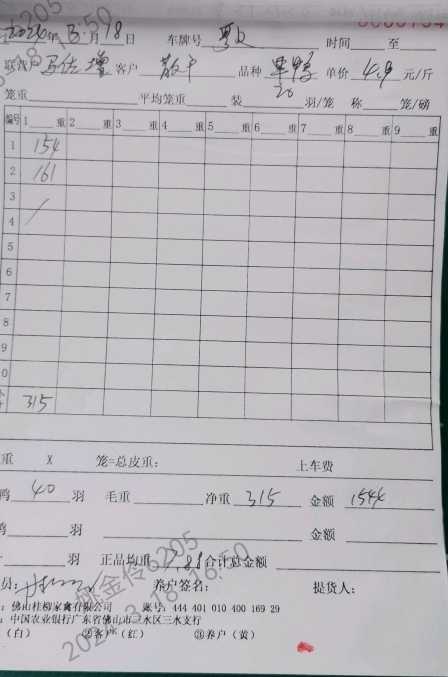 2024年3月18日 车牌号 时间 至
联养户 马伍增 客户 散户 品种 单鸭 单价 4.9 元/斤
笼重 平均笼重 装 20 羽/笼 称 笼/磅
编号 1 重 2 重 3 重 4 重 5 重 6 重 7 重 8 重 9 重
1 154
2 161
3 /
4
5
6
7
8
9
0
315
重 X 笼=总皮重: 上车费
鸭 40 羽 毛重 净重 315 金额 1544
鸭 羽 金额
羽 正品均重 7.88 合计总金额
员: 养户签名: 提货人:
: 佛山桂柳家禽有限公司 账号: 444 401 010 400 169 29
: 中国农业银行广东省佛山市三水区三水支行
(白) ②客户(红) ③养户(黄)
金伶6205
2024.3.18 16:50